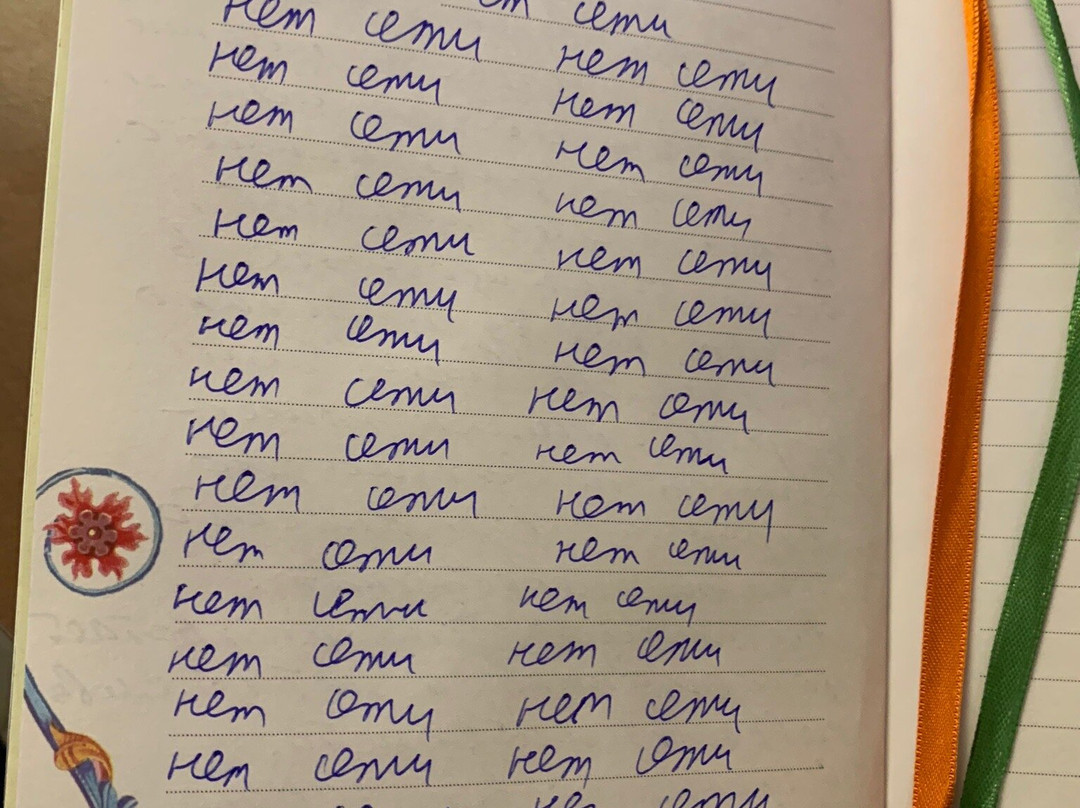 сети
нет сети нет сети
нет сети нет сети
нет сети нет сети
нет сети нет сети
нет сети нет сети
нет сети нет сети
нет сети нет сети
нет сети нет сети
нет сети нет сети
нет сети нет сети
нет сети нет сети
нет сети нет сети
нет сети нет сети
нет сети нет сети
нет сети нет сети